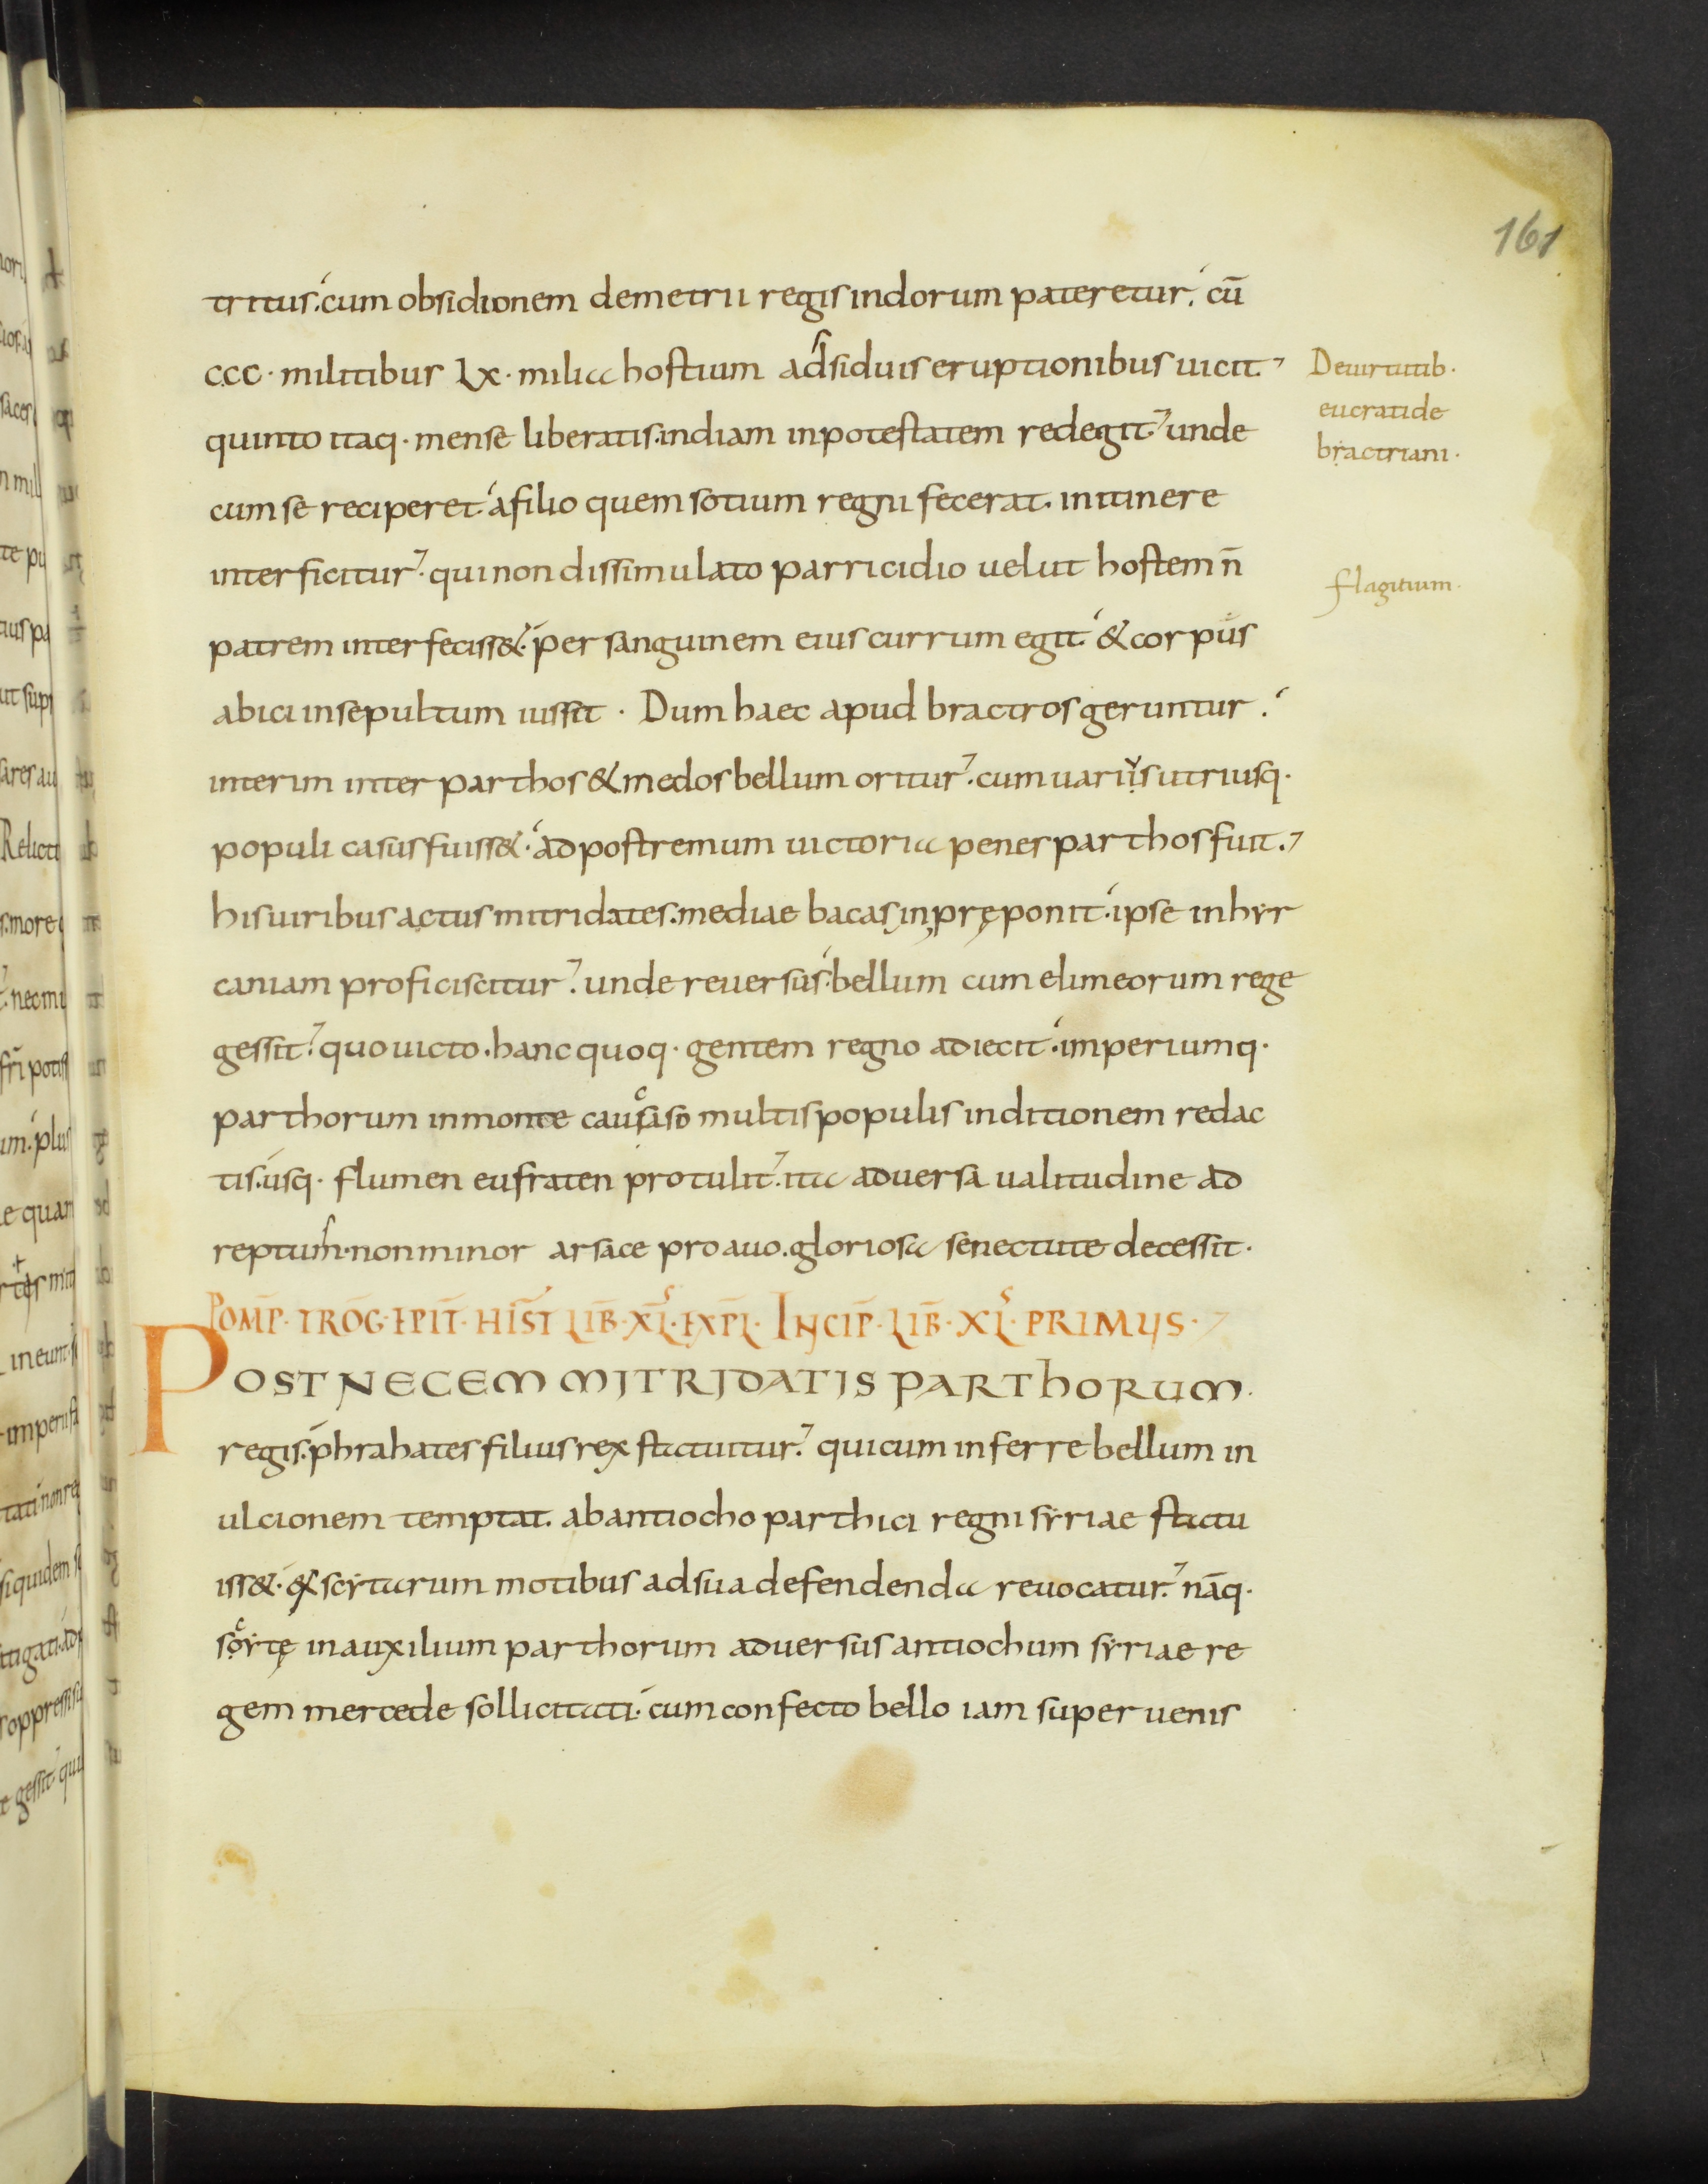 161
tritus. cum obsidionem demetrii regis indorum pateretur. cū
ccc. militibus lx. milia hostium adsiduis eruptionibus uicit.
quinto itaq. mense liberatis. indiam in potestatem redegit. unde
cum se reciperet a filio quem sotium regni fecerat. in itinere
interficitur. qui non dissimulato parricidio uelut hostem n̄
patrem interfeciss&. per sanguinem eius currum egit & corpus
abici insepultum iussit. Dum haec apud bractros geruntur.
interim inter parthos & medos bellum oritur. cum uariis utriusq.
populi casus fuiss&. ad postremum uictoria penes parthos fuit.
his uiribus actus mitridates. mediae bacasin pręponit. ipse in hyr
caniam proficiscitur. unde reuersus. bellum cum elimeorum rege
gessit. quo uicto. hanc quoq. gentem regno adiecit. imperiumq.
parthorum in monte caucaso multis populis in ditionem redac
tis. usq. flumen eufraten protulit. ita aduersa ualitudine ad
reptus. non minor arsace proauo. gloriosa senectute decessit.
POMP̄. TROḠ. EPIT̄. HIST̄ LIB̄. XL. EXPL. INCIP̄. LIB̄. XL. PRIMUS.
POST NECEM MITRIDATIS PARTHORUM.
regis. phrahates filius rex statuitur. qui cum inferre bellum in
ulcionem temptat. ab antiocho parthici regni syriae statu
iss&. & scytarum motibus ad sua defendenda reuocatur. nāq.
scytę in auxilium parthorum aduersus antiochum syriae re
gem mercede sollicitati. cum confecto bello iam superuenis
De uirtutib.
eucratide
bractriani.
flagitium.